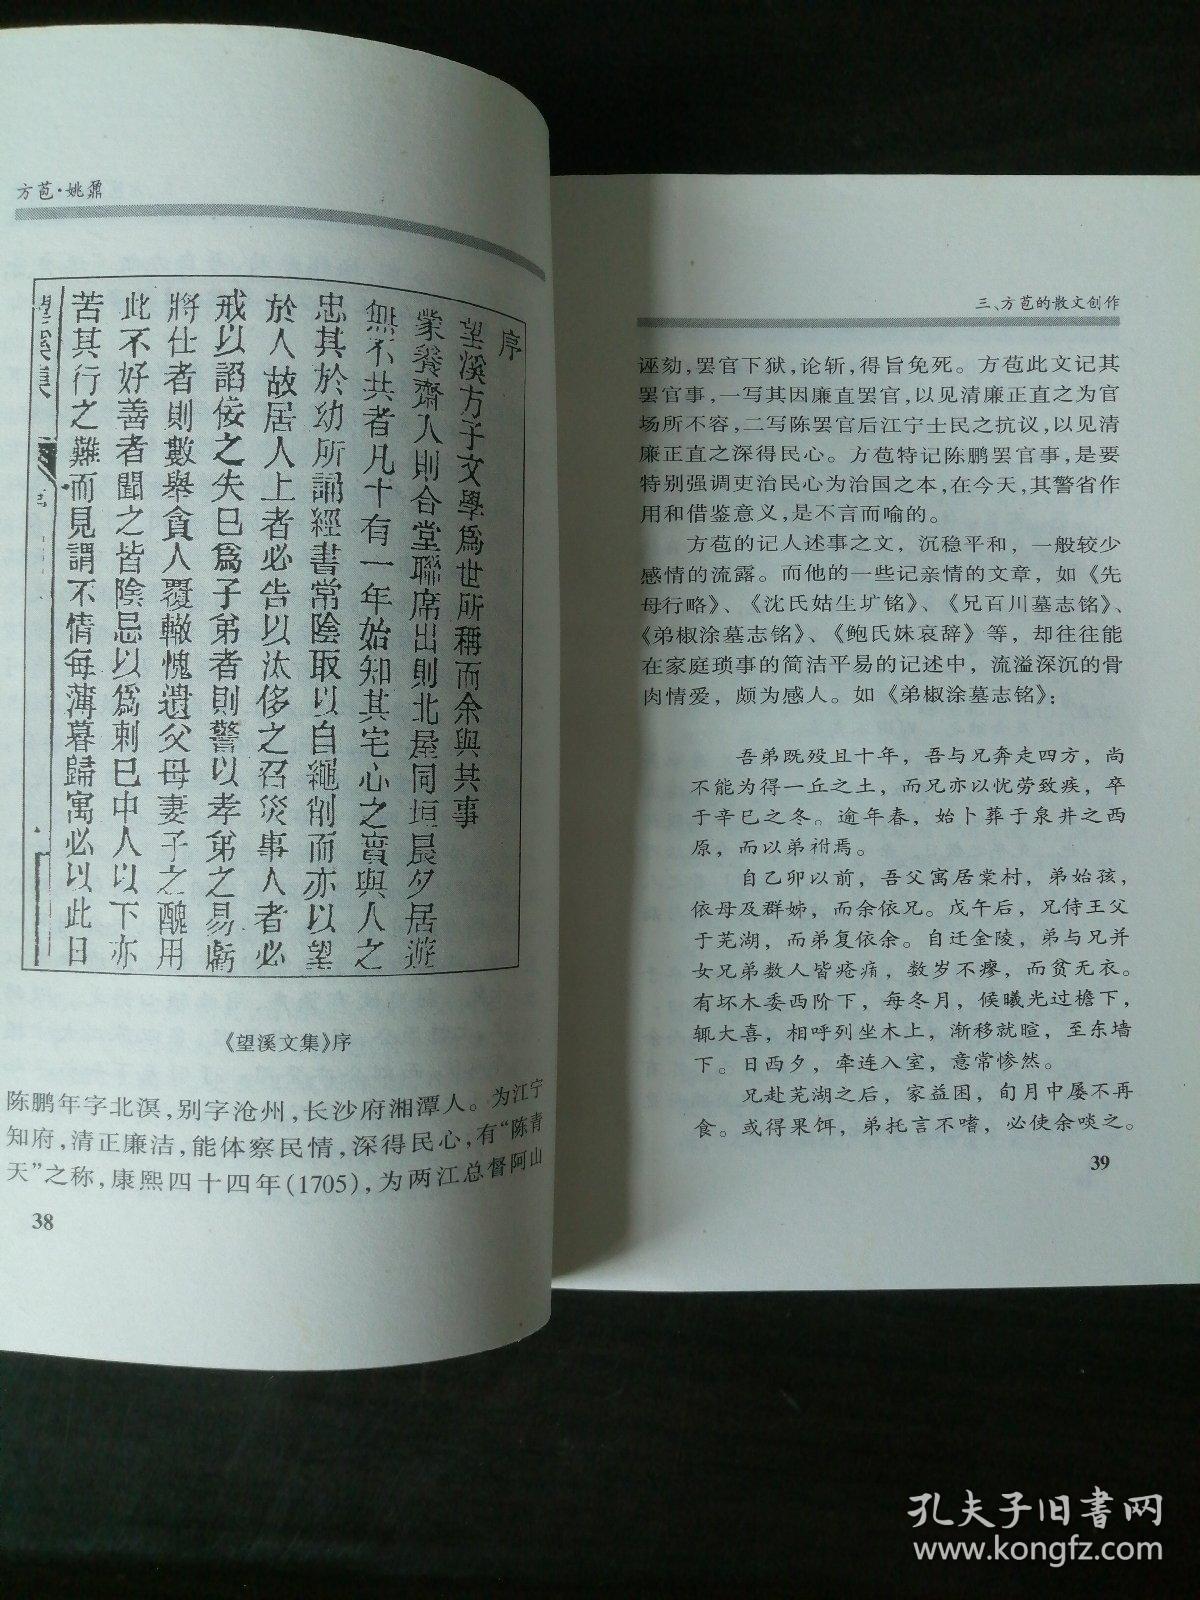 方苞·姚鼐
序
望溪方子文學爲世所稱而余與其事
蒙養齋入則合堂聯席出則北屋同垣晨夕居遊
無不共者凡十有一年始知其宅心之實與人之
忠其於幼所誦經書常陰取以自繩削而亦以望
於人故居人上者必告以汰侈之召災事人者必
戒以諂佞之失已爲子弟者則警以孝弟之易虧
將仕者則數舉貪人覆轍愧遺父母妻子之醜用
此不好善者聞之皆陰忌以爲刺已中人以下亦
苦其行之難而見謂不情每薄暮歸寓必以此日
望溪集
《望溪文集》序
陈鹏年字北溟,别字沧州,长沙府湘潭人。为江宁
知府,清正廉洁,能体察民情,深得民心,有“陈青
天”之称,康熙四十四年(1705),为两江总督阿山
38
三、方苞的散文创作
诬劾,罢官下狱,论斩,得旨免死。方苞此文记其
罢官事,一写其因廉直罢官,以见清廉正直之为官
场所不容,二写陈罢官后江宁士民之抗议,以见清
廉正直之深得民心。方苞特记陈鹏罢官事,是要
特别强调吏治民心为治国之本,在今天,其警省作
用和借鉴意义,是不言而喻的。
方苞的记人述事之文，沉稳平和，一般较少
感情的流露。而他的一些记亲情的文章，如《先
母行略》、《沈氏姑生圹铭》、《兄百川墓志铭》、
《弟椒涂墓志铭》、《鲍氏妹哀辞》等，却往往能
在家庭琐事的简洁平易的记述中，流溢深沉的骨
肉情爱，颇为感人。如《弟椒涂墓志铭》：
吾弟既殁且十年，吾与兄奔走四方，尚
不能为得一丘之土，而兄亦以忧劳致疾，卒
于辛巳之冬。逾年春，始卜葬于泉井之西
原，而以弟祔焉。
自乙卯以前，吾父寓居棠村，弟始孩，
依母及群姊，而余依兄。戊午后，兄侍王父
于芜湖，而弟复依余。自迁金陵，弟与兄并
女兄弟数人皆疮痏，数岁不瘳，而贫无衣。
有坏木委西阶下，每冬月，候曦光过檐下，
辄大喜，相呼列坐木上，渐移就暄，至东墙
下。日西夕，牵连入室，意常惨然。
兄赴芜湖之后，家益困，旬月中屡不再
食。或得果饵，弟托言不嗜，必使余啖之。
39
孔夫子旧书网
www.kongfz.com